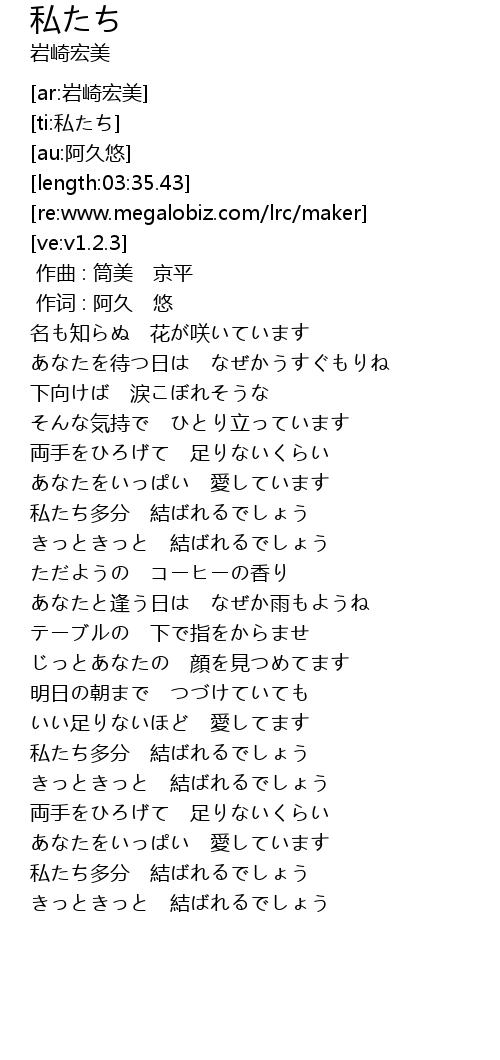 私たち
岩崎宏美
[ar:岩崎宏美]
[ti:私たち]
[au:阿久悠]
[length:03:35.43]
[re:www.megalobiz.com/lrc/maker]
[ve:v1.2.3]
作曲 : 筒美　京平
作词 : 阿久　悠
名も知らぬ　花が咲いています
あなたを待つ日は　なぜかうすぐもりね
下向けば　涙こぼれそうな
そんな気持で　ひとり立っています
両手をひろげて　足りないくらい
あなたをいっぱい　愛しています
私たち多分　結ばれるでしょう
きっときっと　結ばれるでしょう
ただようの　コーヒーの香り
あなたと逢う日は　なぜか雨もようね
テーブルの　下で指をからませ
じっとあなたの　顔を見つめてます
明日の朝まで　つづけていても
いい足りないほど　愛してます
私たち多分　結ばれるでしょう
きっときっと　結ばれるでしょう
両手をひろげて　足りないくらい
あなたをいっぱい　愛しています
私たち多分　結ばれるでしょう
きっときっと　結ばれるでしょう